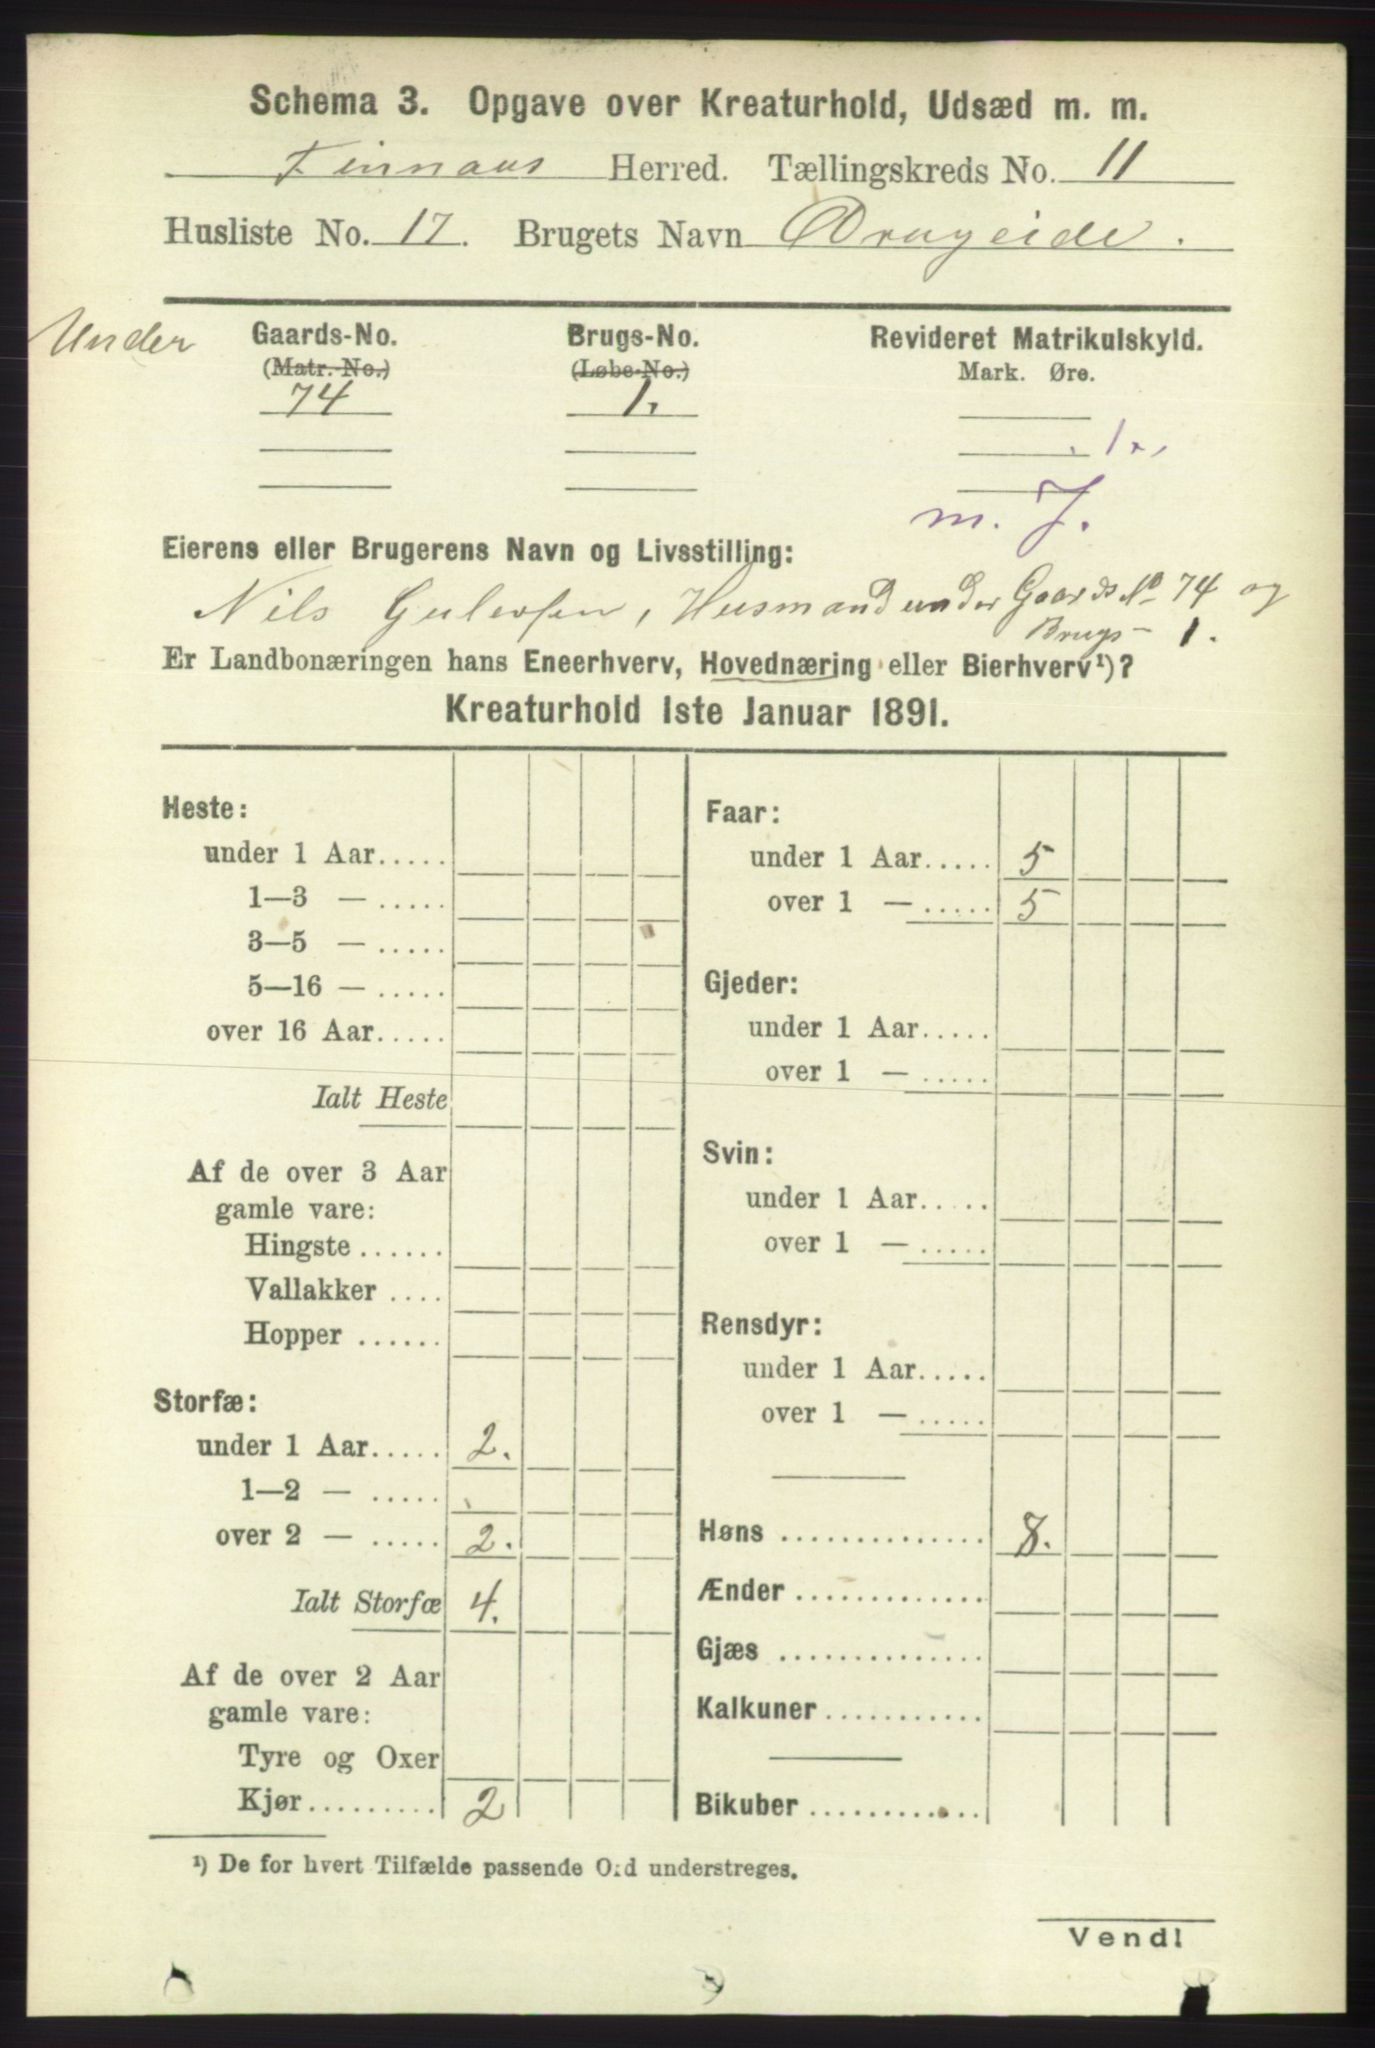 Schema 3. Opgave over Kreaturhold, Udsæd m. m.
Finnaas Herred. Tællingskreds No. 11
Husliste No. 17. Brugets Navn
Under
Gaards-No. Brugs-No. Revideret Matrikulskyld.
(Matr.-No.) (Løbe-No.) Mark. Øre.
74 1.
m. J.
Eierens eller Brugerens Navn og Livsstilling:
Nils, Husmand under Gaards No 74 og
Brugs - 1.
Er Landbonæringen hans Eneerhverv, Hovednæring eller Bierhverv¹)?
Kreaturhold 1ste Januar 1891.
Heste:
under 1 Aar.....
1—3 — .....
3—5 — .....
5—16 — .....
over 16 Aar.....
Ialt Heste
Af de over 3 Aar
gamle vare:
Hingste ......
Vallakker ....
Hopper ......
Storfæ:
under 1 Aar..... 2.
1—2 — .....
over 2 — ..... 2.
Ialt Storfæ 4.
Af de over 2 Aar
gamle vare:
Tyre og Oxer
Kjør......... 2
Faar:
under 1 Aar..... 5
over 1 — ..... 5
Gjeder:
under 1 Aar.....
over 1 — .....
Svin:
under 1 Aar.....
over 1 — .....
Rensdyr:
under 1 Aar.....
over 1 — .....
Høns .............. 8.
Ænder .............
Gjæs ..............
Kalkuner ...........
Bikuber ............
¹) De for hvert Tilfælde passende Ord understreges.
Vend!